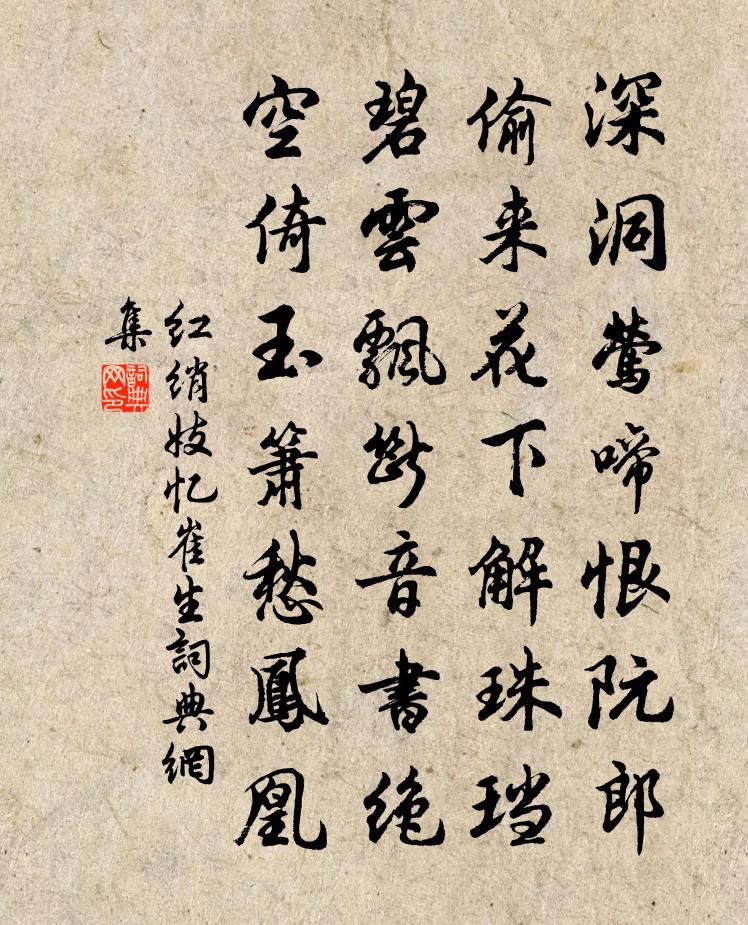 深洞莺啼恨阮郎
偷来花下解珠珰
碧雲飄斷音書绝
空倚玉箫愁鳳凰
红绡妓忆崔生詞典網
集
詞典
网印